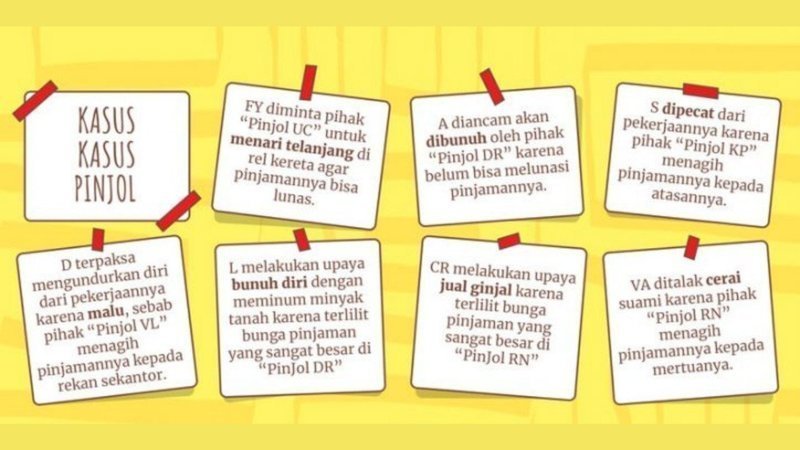 KASUS
KASUS
PINJOL
FY diminta pihak
“Pinjol UC” untuk
menari telanjang di
rel kereta agar
pinjamannya bisa
lunas.
A diancam akan
dibunuh oleh pihak
“Pinjol DR” karena
belum bisa melunasi
pinjamannya.
S dipecat dari
pekerjaannya karena
pihak “Pinjol KP”
menagih
pinjamannya kepada
atasannya.
D terpaksa
mengundurkan diri
dari pekerjaannya
karena malu, sebab
pihak “Pinjol VL”
menagih
pinjamannya kepada
rekan sekantor.
L melakukan upaya
bunuh diri dengan
meminum minyak
tanah karena terlilit
bunga pinjaman
yang sangat besar di
“PinJol DR”
CR melakukan upaya
jual ginjal karena
terlilit bunga
pinjaman yang
sangat besar di
“PinJol RN”
VA ditalak cerai
suami karena pihak
“Pinjol RN”
menagih
pinjamannya kepada
mertuanya.